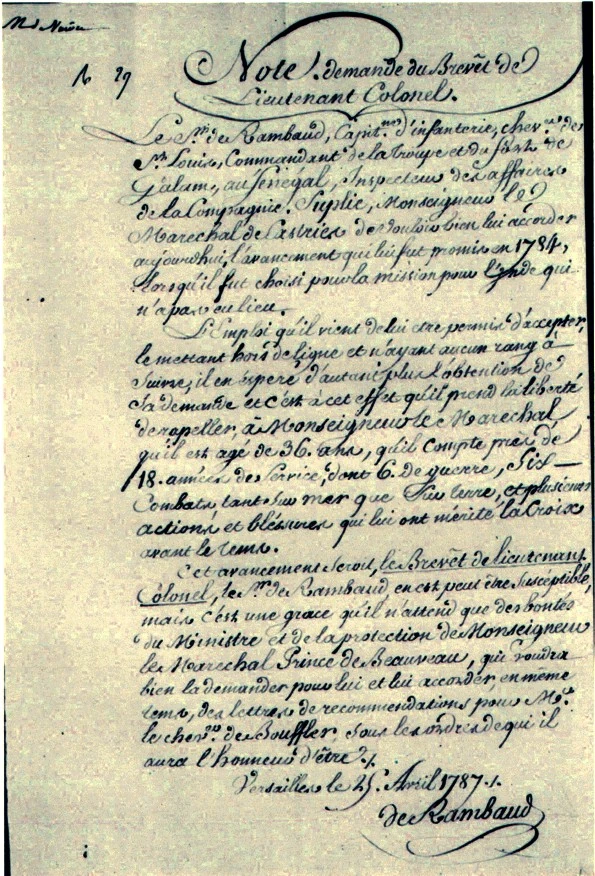 29
Note. demande du Brevêt de
Lieutenant Colonel.
Le Sr. de Rambaud, Capitne. d'infanterie, cher. de
St. Louis, Commandant de la Troupe et du fort de
Galam, au Sénégal, Inspecteur des affaires
de la Compagnie. Suplie, Monseigneur le
Marechal de Castries de vouloir bien lui accorder
aujourdhui, l'avancement qui lui fut promis en 1784,
Lorsqu'il fut choisi pour la mission pour l'Inde qui
n'a pas eu lieu.
L'Emploi qu'il vient de lui etre permis d'accepter,
le mettant hors de ligne et n'ayant aucun rang à
Suivre, il en espére d'autant plus l'obtention de
Sa demande et c'est à cet effet qu'il prend la liberté
de rapeller, à Monseigneur le Marechal
qu'il est agé de 36. ans, qu'il compte près de
18. années de Service, dont 6. de guerre, Six
Combats, tant Sur mer que Sur terre, et plusieurs
actions et bléssures qui lui ont mérité la Croix
avant le tems.
Cet avancement Seroit, le Brevêt de lieutenant
Colonel, le Sr. de Rambaud, en est peut être Susceptible,
mais c'est une grace qu'il n'attend que des bontés
du Ministre et de la protection de Monseigneur
le Marechal Prince de Beauveau, qui voudra
bien la demander pour lui et lui accorder en meme
tems, des lettres de recommendations pour Mr.
le cher. de Boufflers Sous les ordres de qui il
aura l'honneur d'être ./.
Versailles le 25. Avril 1787 ./.
de Rambaud